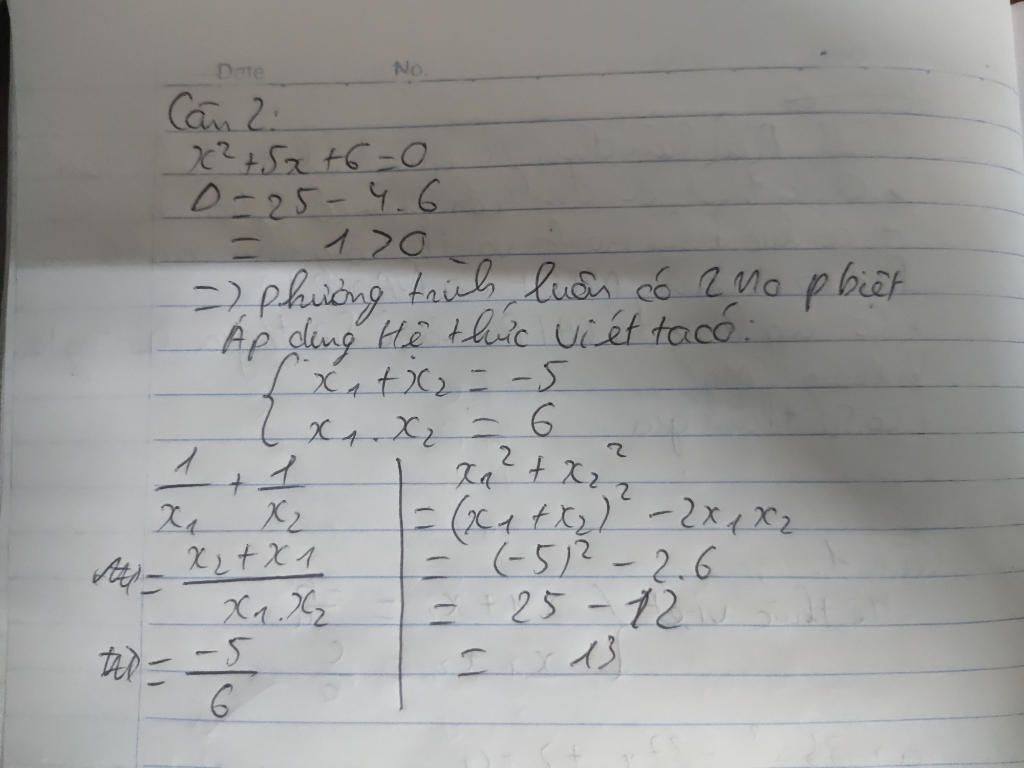 Date No.
Câu 2:
x² + 5x + 6 = 0
Δ = 25 - 4.6
= 1 > 0
=> phương trình luôn có 2 no pbiệt
Áp dụng Hệ thức viét ta có:
{ x₁ + x₂ = -5
x₁ . x₂ = 6
1/x₁ + 1/x₂
= (x₂ + x₁)/(x₁.x₂)
= -5/6
x₁² + x₂²
= (x₁ + x₂)² - 2x₁x₂
= (-5)² - 2.6
= 25 - 12
= 13